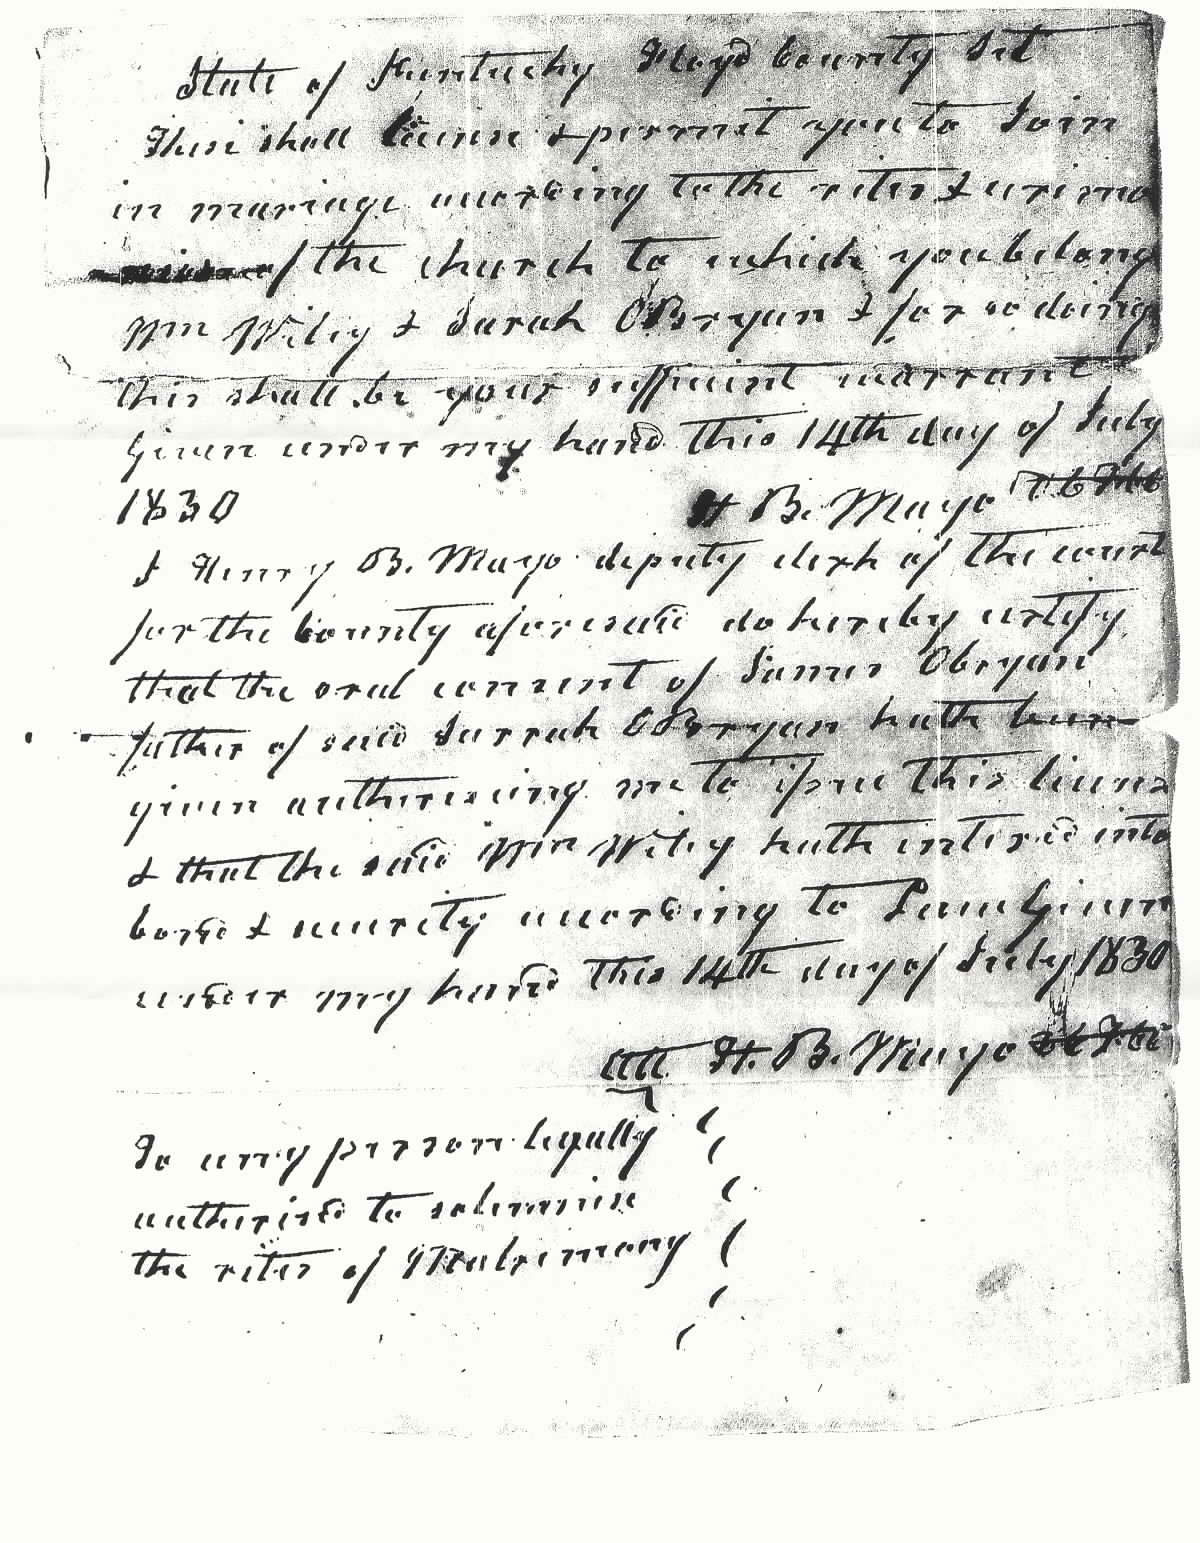 State of Kentucky Floyd County Sct
These shall licence & permit you to Join
in marriage according to the rites & cerimo
of the church to which you belong
Wm Wiley & Sarah OBryan & for so doing
this shall be your sufficient warrant
Given under my hand this 14th day of July
1830 H B. Mayo
I Henry B. Mayo deputy clerk of the court
for the County aforesaid do hereby certify
that the oral consent of James Obryan
father of said Sarrah OBryan hath been
given autherising me to issue this licens
& that the said Wm Wiley hath intered into
bond & security according to Law Given
under my hand this 14th day of July 1830
Att H. B. Mayo
To any person legally
autherised to solemnise
the rites of Matrimony